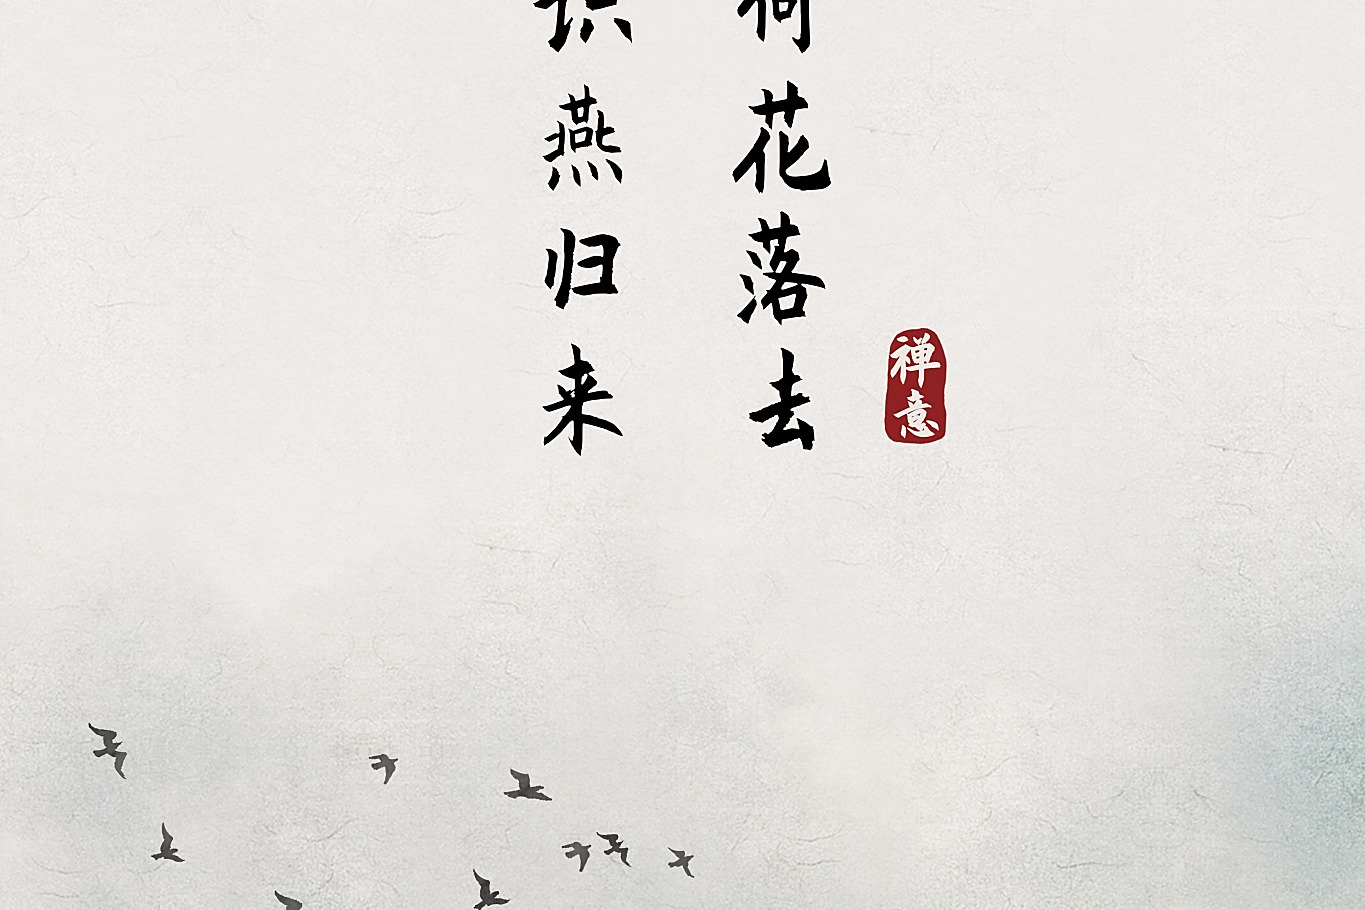 花落去
燕归来
禅意